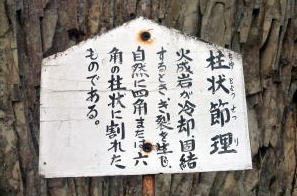 柱状節理
ちゅうじょうせつり
火成岩が冷却固結
するときき裂を生じ
自然に四角または六
角の柱状に割れた
ものである。